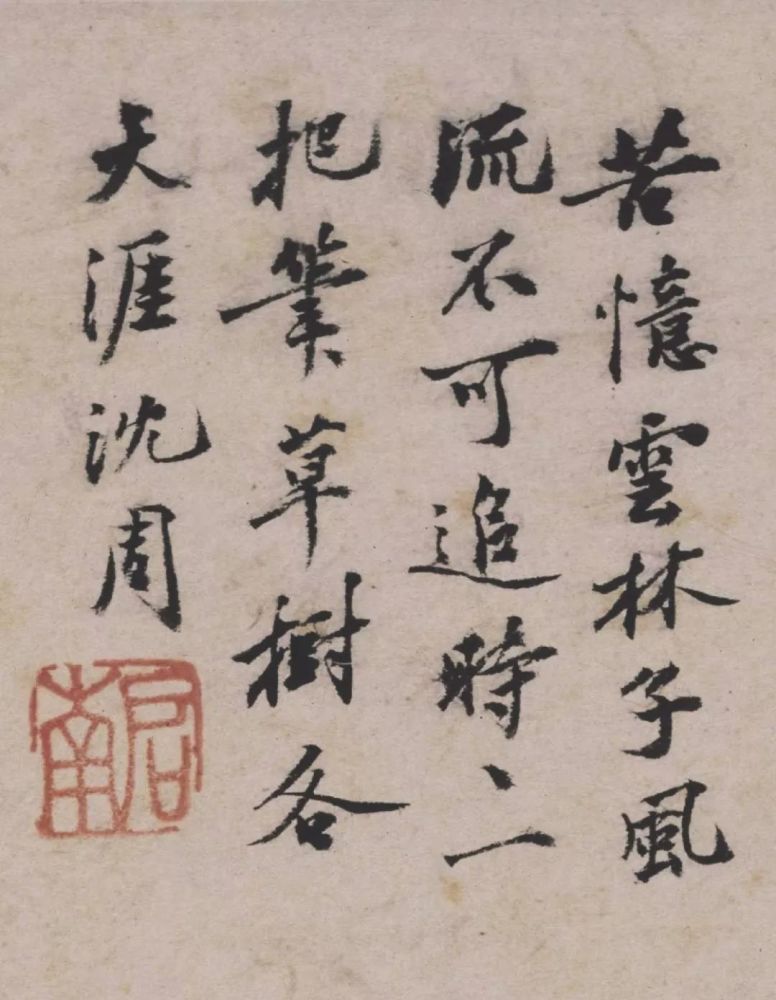 苦憶雲林子風
流不可追時〻一
把筆草樹各
天涯沈周
启南